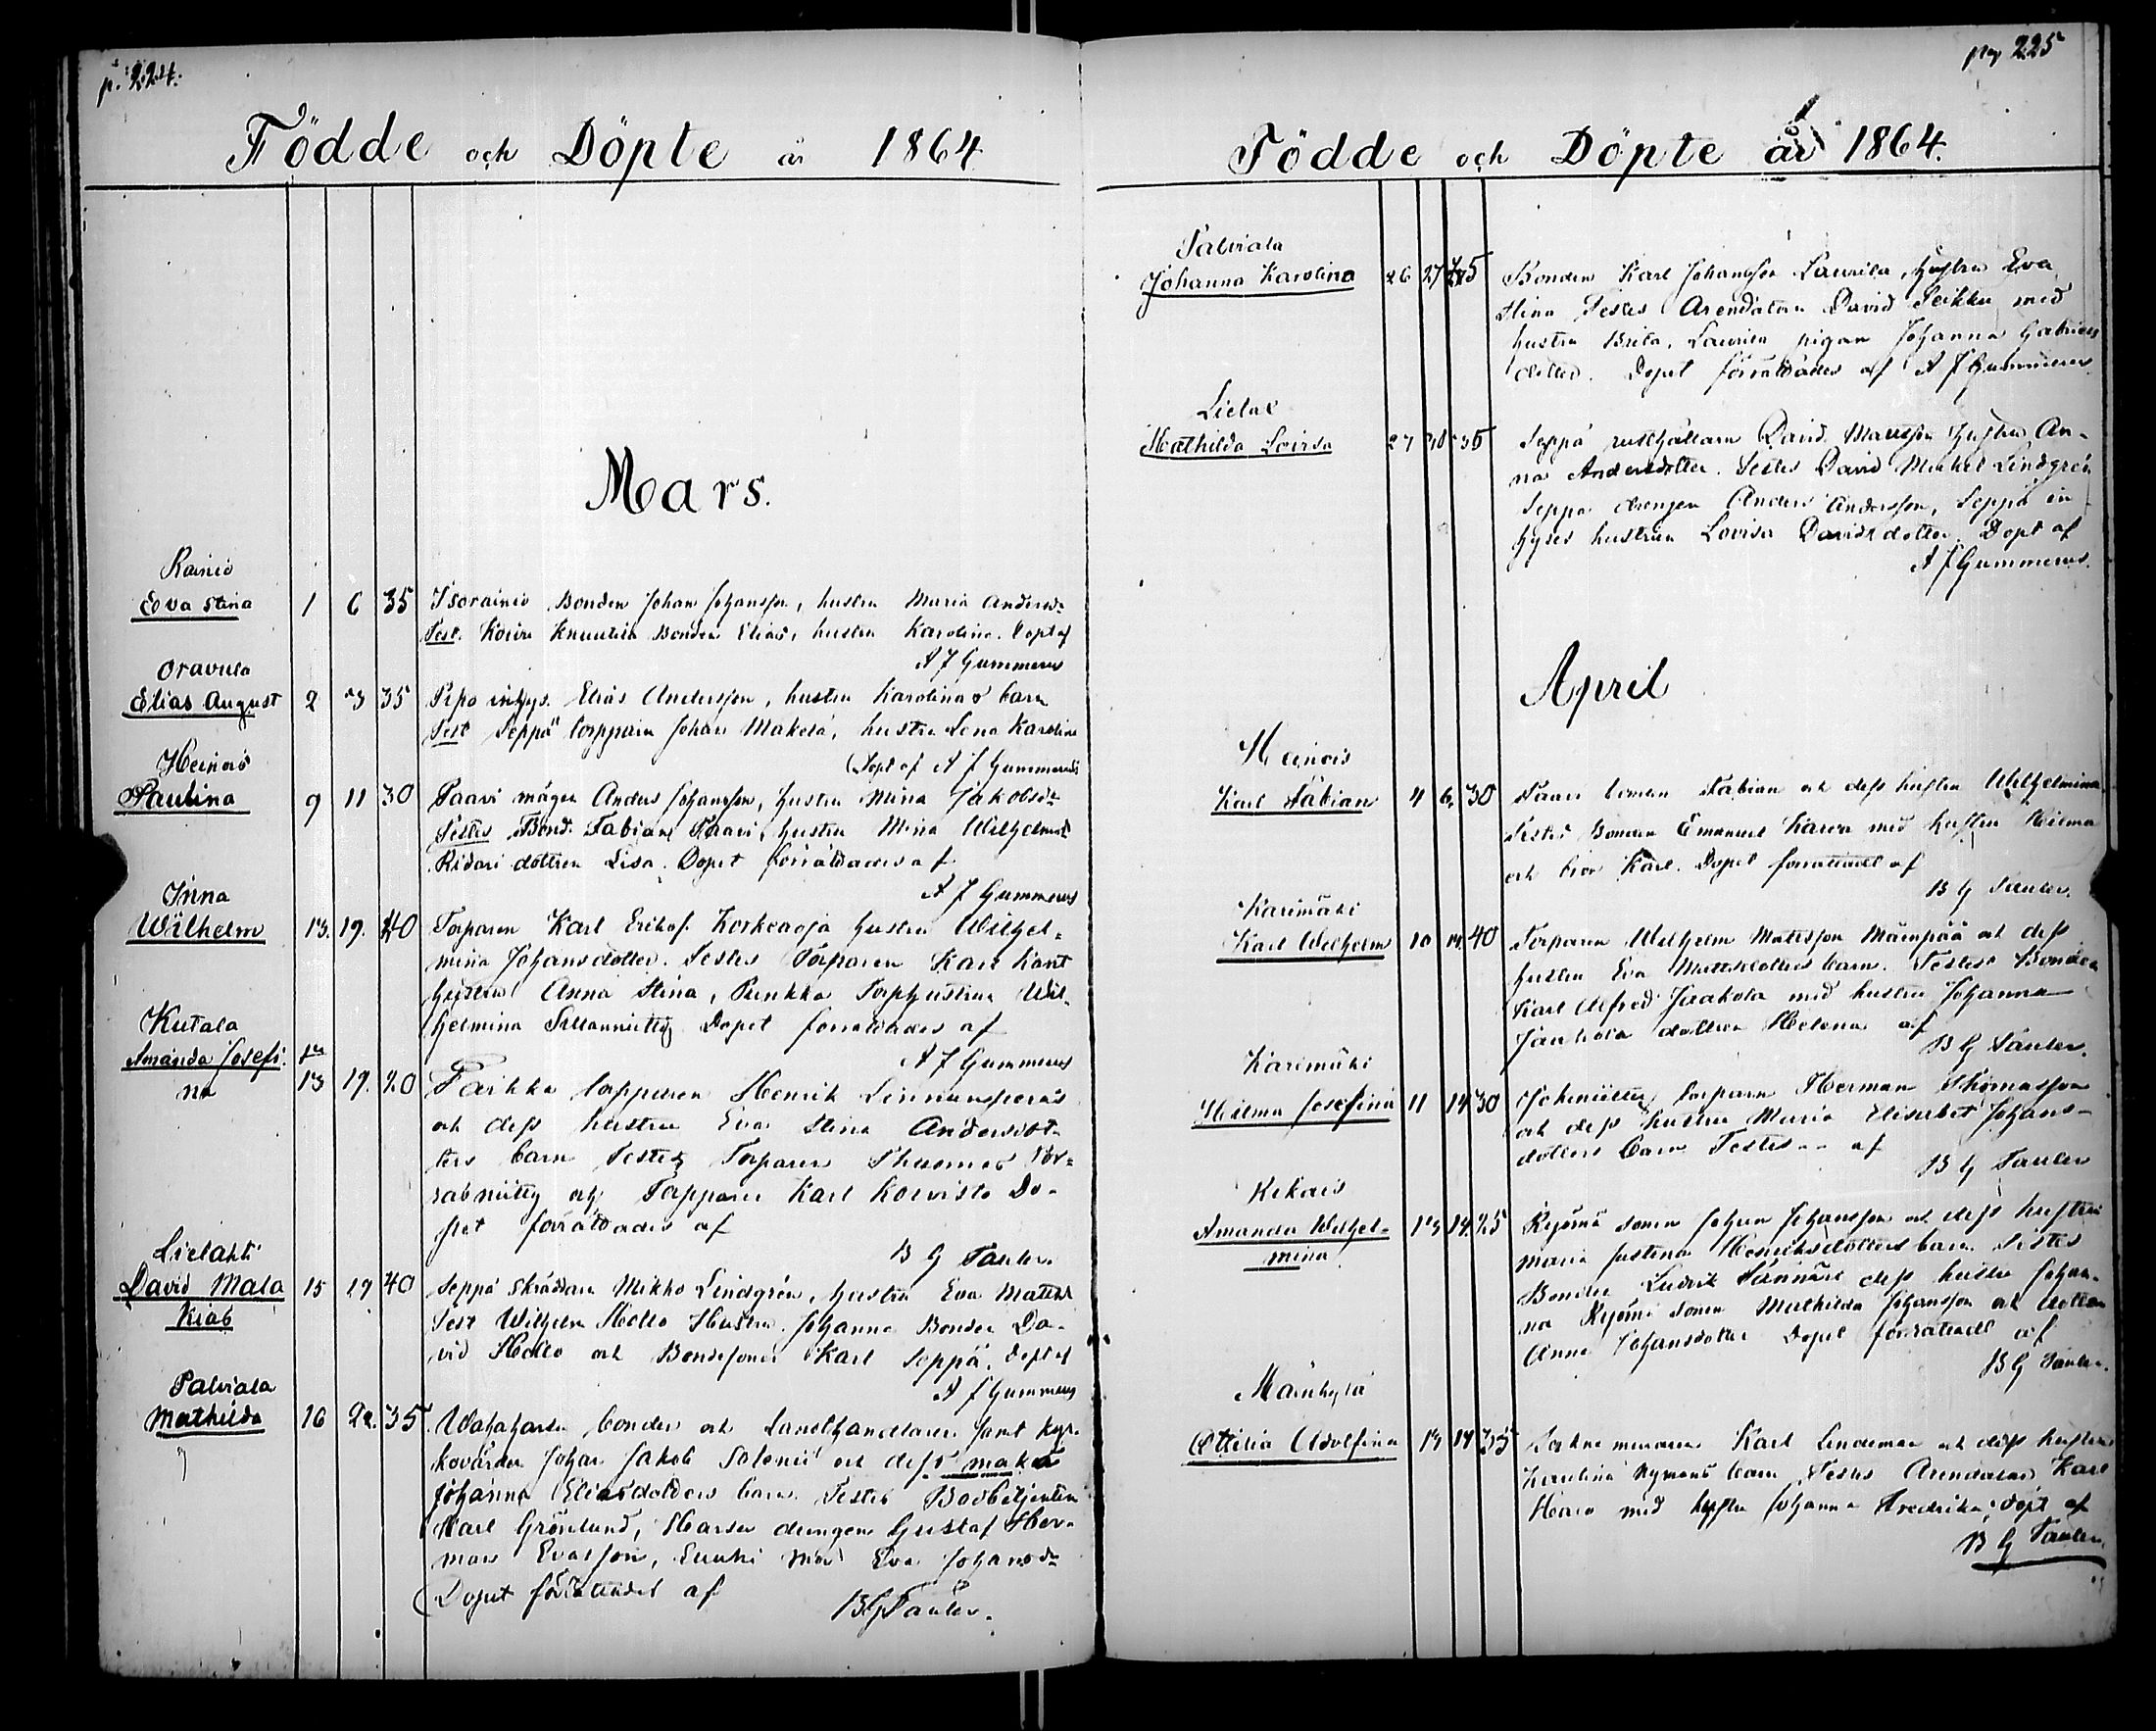 p. 224.
Födde och Döpte år 1864
Mars.
Rainio
Eova Stina 1 6 35 Isorainio Bonden Johan Johansson, hustru Maria Andersdr
Test. Koivu Knuutila Bonden Elias, hustru Karolina. Döpt af
A J Gummerus
Oravula
Elias August 2 3 35 Pipo inhys. Elias Andersson, hustru Karolinas barn
Test Seppä torpparn Johan Makelä, hustru Lena Karolina
Döpt af A J Gummerus
Heinois
Paulina 9 11 30 Paavi mågen Anders Johansson, hustru Mina Jakobsdr
Testes Bond. Fabian Paavi, hustru Mina Wilhelmsdr
Ridari dottren Lisa. Dopet förrättades af
A J Gummerus
Irina
Wilhelm 13. 19. 40 Torparen Karl Eriksf. Korkeaoja hustru Wilhel-
mina Johansdotter. Testes Torparen Karl Kant
hustru Anna Stina, Punkka Torphustrun Wil-
helmina Dopet förrättades af
A J Gummerus
Kutala
Amanda Josefi-
na 13 19. 20 Parkka torpparen Henrik Linnunperäs
och dess hustru Eva Stina Andersdot-
ters barn Testes Torparen Thuomas
och Torpparen Karl Koivisto Do-
pet förrättades af
B G Tauler
Lielahti
David Mala
kias 15 19 40 Seppä Skräddare Mikko Lindgrén, hustru Eva Mattsdr
Test Wilhelm Hollo Hustru Johanna Bonden Da-
vid Hollo och Bondesonen Karl Seppä. Döpt af
A J Gummerus
Palviala
Mathilda 16 22. 35 Wahaharsu bonden och Landthandlaren samt kyr-
kovärden Johan Jakob Salonii och dess maka
Johanna Eliasdotters barn. Testes Bodbetjenten
Karl Grönlund, Harsu drengen Gustaf Her-
man Evasson, Euuki Eva Johansdr
Dopet förrättadet af B G Tauler.
pag 225
Födde och Döpte år 1864.
Palviala
Johanna Karolina 26 27 25 Bonden Karl Johansson Laurila, hustru Eva
Stina Testes Arendatorn David Seikku med
hustru Brita, Laurila pigan Johanna Gabriels
dotter. Dopet förrättades af A J Gummerus
Lielax
Mathilda Lovisa 27 30 35 Seppä rusthållarn David Mattsson hustru An-
na Andersdotter. Testes David Mickel Lindgrén
Seppä drengen Anders Andersson, Seppä in-
hyses hustrun Lovisa Davidsdotter. Döpt af
A J Gummerus.
April
Heinois
Karl Fabian 4 6. 30 Paavi bonden Fabian och dess hustru Wilhelmina
Testes Bonden Emanuel Karva med hustru Wilma
och bror Karl. Dopet förrättadt af
B G Tauler.
Karimäki
Karl Wilhelm 10 14. 40 Torparen Wilhelm Mattsson Mäenpää och dess
hustru Eva Mattsdotters barn. Testes Bonden
Karl Alfred Jaakola med hustru Johanna
Jaakola dottren Helena af
B G Tauler.
Karimäki
Hilma Josefina 11 14 30 torparn Herman Thomasson
och dess hustru Maria Elisabet Johans-
dotters barn Testes -- af
B G Tauler
Kikois
Amanda Wilhel-
mina 13 14. 25 Kyömi sonen Johan Johansson och dess hustru
Maria Justina Henriksdotters barn Testes
Bonden Ludvik dess hustru Johan-
na Kyömi sonen Mathilda Johansson och dottren
Anna Johansdotter Dopet förrättadt af
B G Tauler.
Mäenkylä
Ottilia Adolfina 13 14 25 muraren Karl Lindeman och dess hustru
Kaulina Nymans barn Testes Arendatorn Karl
med hustru Johanna Fredrika, döpt af
B G Tauler.